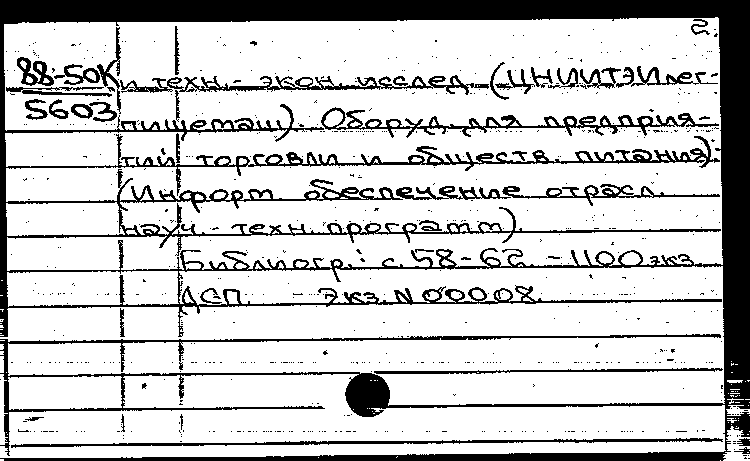 2.
88-50К и техн.- экон. исслед. (ЦНИИТЭИлег-
5603 пищемаш). Оборуд. для предприя-
тий торговли и обществ. питания):
(Информ. обеспечение отрасл.
науч.- техн. программ).
Библиогр.: с. 58-62. - 1100 экз.
ДСП. - Экз. N 00008.